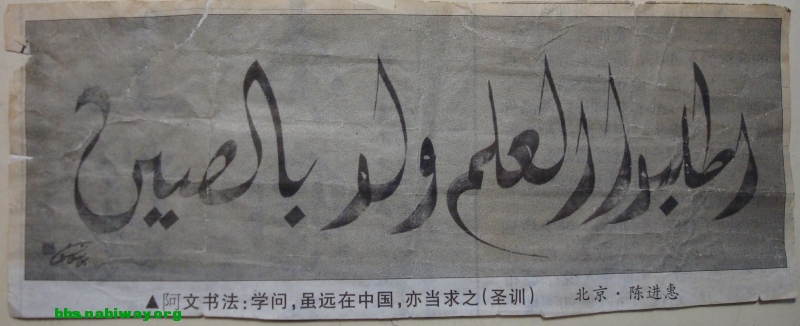 اطلبوا العلم ولو بالصين
▲阿文书法:学问,虽远在中国,亦当求之(圣训) 北京·陈进惠
bbs.nabiway.org